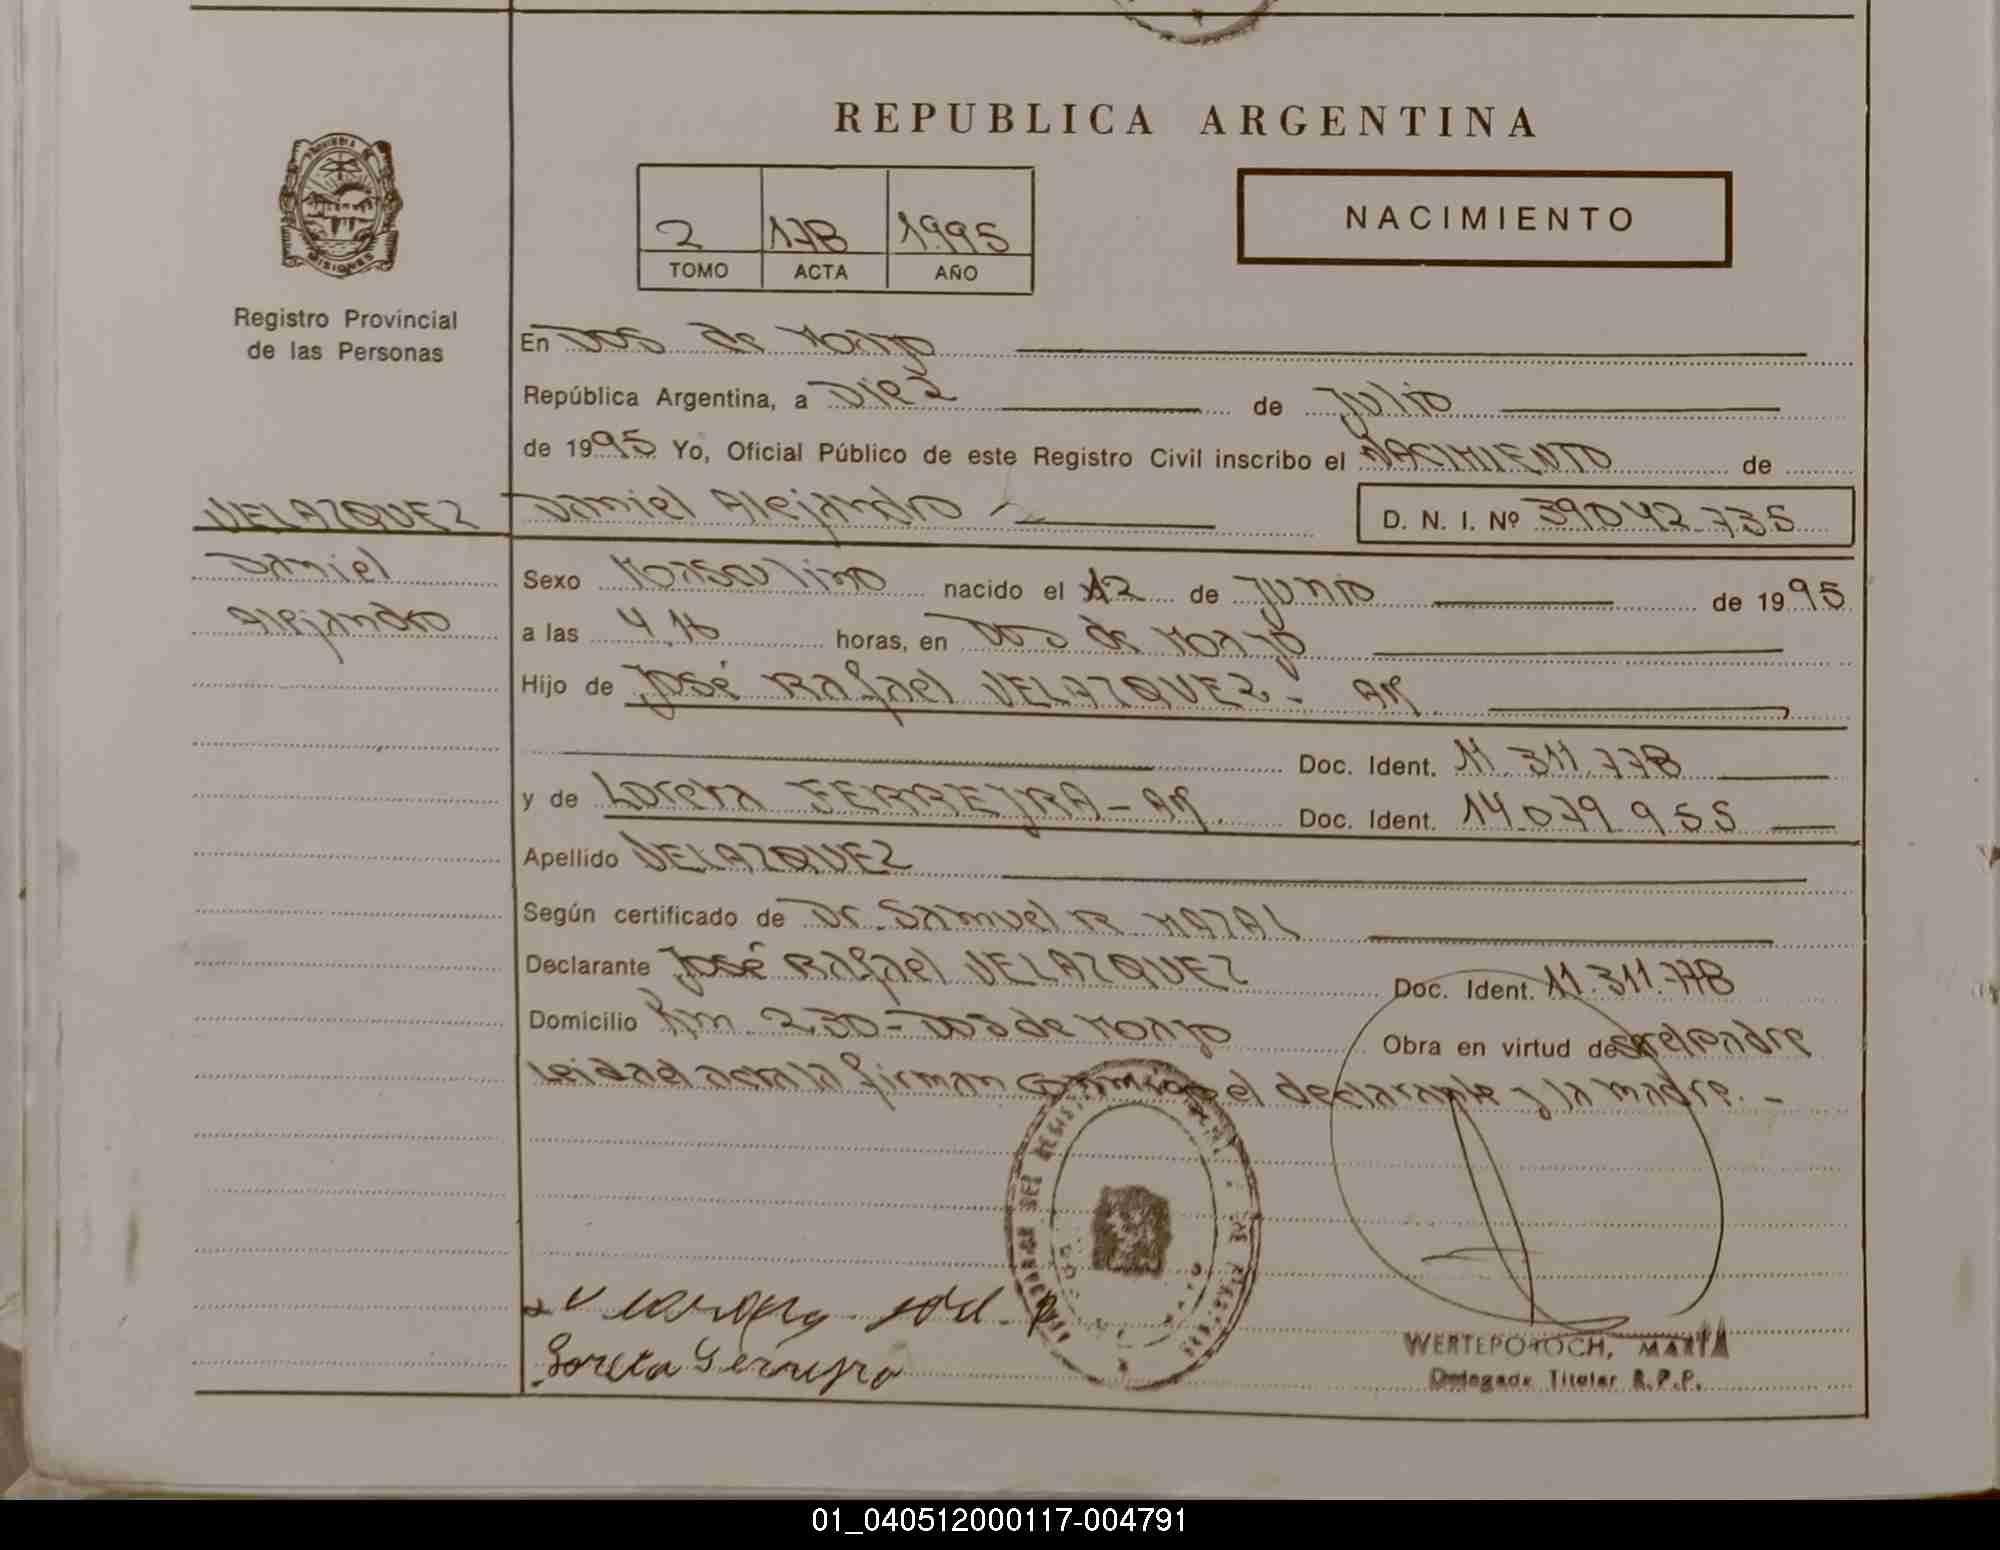 REPUBLICA ARGENTINA
NACIMIENTO
2 178 1995
TOMO ACTA AÑO
MISIONES
Registro Provincial
de las Personas
En Dos de Mayo
República Argentina, a Diez de Julio
de 1995 Yo, Oficial Público de este Registro Civil inscribo el NACIMIENTO de
VELAZQUEZ
Daniel Alejandro
D. N. I. Nº 39042.735
Daniel
Alejandro
Sexo Masculino nacido el 12 de Junio de 1995
a las 4,16 horas, en Dos de Mayo
Hijo de José Rafael VELAZQUEZ - AR
Doc. Ident. 11.311.778
y de Loreta FERREJRA - AR. Doc. Ident. 14.079.955
Apellido VELAZQUEZ
Según certificado de Dr. Samuel R MAZAL
Declarante José Rafael VELAZQUEZ Doc. Ident. 11.311.778
Domicilio Km 230 - Dos de Mayo Obra en virtud de ser el padre
leida el acta la firman conmigo el declarante y la madre. -
Loreta Ferreyra
WERTEPOTOCH, MARTA
Delegada Titular R.P.P.
01_040512000117-004791